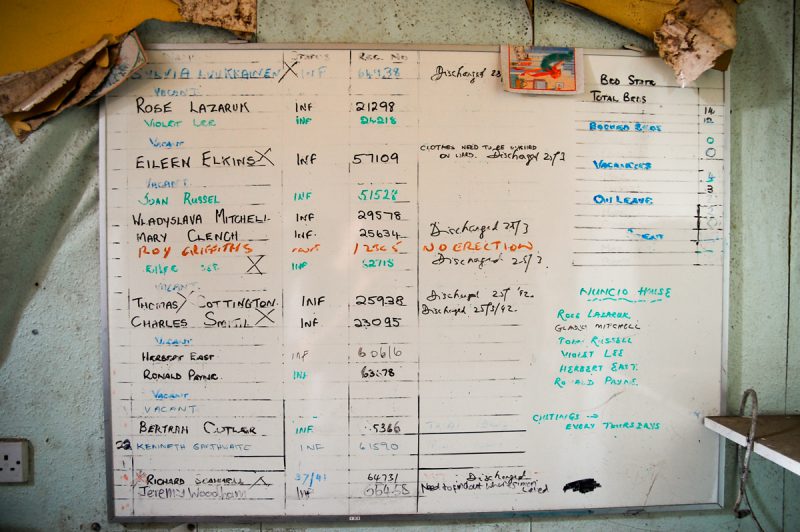 STATUS REG. NO
SYLVIA LUUKKAINEN X INF 66938 Discharged 25
VACANT
ROSE LAZARUK INF 21298
VIOLET LEE INF 24218
VACANT
EILEEN ELKINS X INF 57109 CLOTHES NEED TO BE
ON WARD. Discharged 25/3
VACANT
JOAN RUSSEL INF 51528
WLADYSLAVA MITCHELL INF 29578
MARY CLENCH INF. 25634 Discharged 25/3
ROY GRIFFITHS NO ERECTION
X INF 62718 Discharged 25/3.
VACANT
THOMAS COTTINGTON INF 25938 Discharged 25/ '92.
CHARLES SMITH X INF 23095 Discharged 25/3/92.
VACANT
HERBERT EAST INF 60616
RONALD PAYNE INF 63578
VACANT
VACANT
BERTRAM CUTLER INF 5366
22 KENNETH INF 61590
RICHARD 37/41 6473/ Discharged
Jeremy Woodham INF Need to find out
BED STATE
TOTAL BEDS 14
BORROWED BEDS 0
0
VACANCIES
4
3
ON LEAVE
NUNCIO HOUSE
ROSE LAZARUK
GLADYS MITCHELL
RUSSELL
VIOLET LEE
HERBERT EAST.
RONALD PAYNE.
OUTINGS →
EVERY THURSDAYS